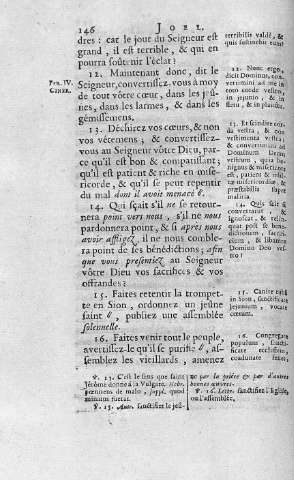 146 JOEL.
dres: car le jour du Seigneur est
grand, il est terrible, & qui en
pourra soûtenir l'éclat?
12. Maintenant donc, dit le
Seigneur, convertissez-vous à moy
de tout vôtre cœur, dans les jeû-
nes, dans les larmes, & dans les
gémissemens.
13. Déchirez vos cœurs, & non
vos vétemens, & convertissez-
vous au Seigneur vôtre Dieu, par-
ce qu'il est bon & compatissant;
qu'il est patient & riche en mise-
ricorde, & qu'il se peut repentir
du mal dont il avoit menacé
14. Qui sçait s'il ne se retour-
nera point vers nous, s'il ne nous
pardonnera point, & si apres nous
avoir affligez, il ne nous comble-
ra point de ses bénédictions; afin
que vous presentiez au Seigneur
vôtre Dieu vos sacrifices & vos
offrandes?
15. Faites retentir la trompet-
te en Sion, ordonnez un jeûne
saint, publiez une assemblée
solemnelle.
16. Faites venir tout le peuple,
avertissez-le qu'il se purifie, as-
semblez les vieillards, amenez
Fer. IV.
Ciner.
terribilis valdè, &
quis sustinebit eum?
12. Nunc ergo,
dicit Dominus, con-
vertimini ad me in
toto corde vestro,
in jejunio, & in
fletu, & in planctu.
13. Et scindite cor-
da vestra, & non
vestimenta vestra;
& convertimini ad
Dominum Deum
vestrum, quia beni-
gnus & misericors
est, patiens & mul-
tæ misericordiæ, &
præstabilis super
malitia.
14. Quis scit si
convertatur, &
ignoscat, & relin-
quat post se bene-
dictionem, sacrifi-
cium, & libamen
Domino Deo ves-
tro?
15. Canite tubâ
in Sion, sanctificate
jejunium, vocate
cœtum.
16. Congregate
populum, sanctifi-
cate ecclesiam,
coadunate senes,
℣. 13. C'est le sens que saint
Jérôme donne à la Vulgate. Hebr.
pœnitens de malo, suppl. quod
minatus fuerat.
℣. 15. Autr. sanctifiez le jeû-
ne par la priére & par d'autres
bonnes œuvres.
℣. 16. Lettr. sanctifiez l'Eglise,
ou l'assemblée.